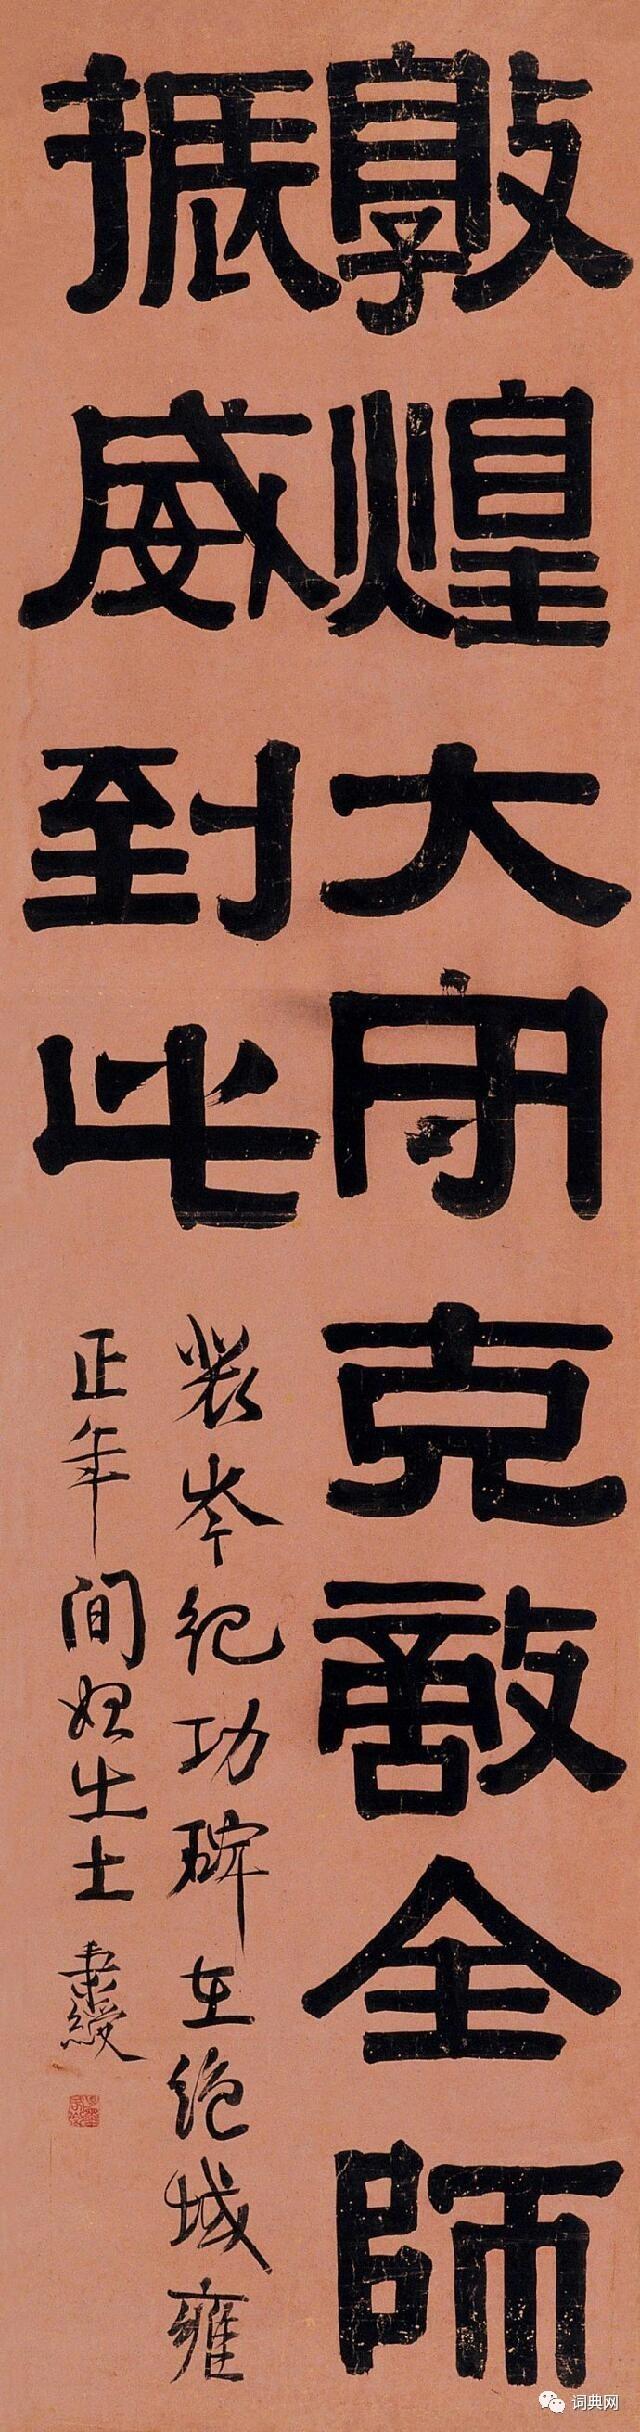 敦煌大守克敵全師
振威到此
裴岑纪功碑在绝域雍
正年间始出土 秉綬
词典网